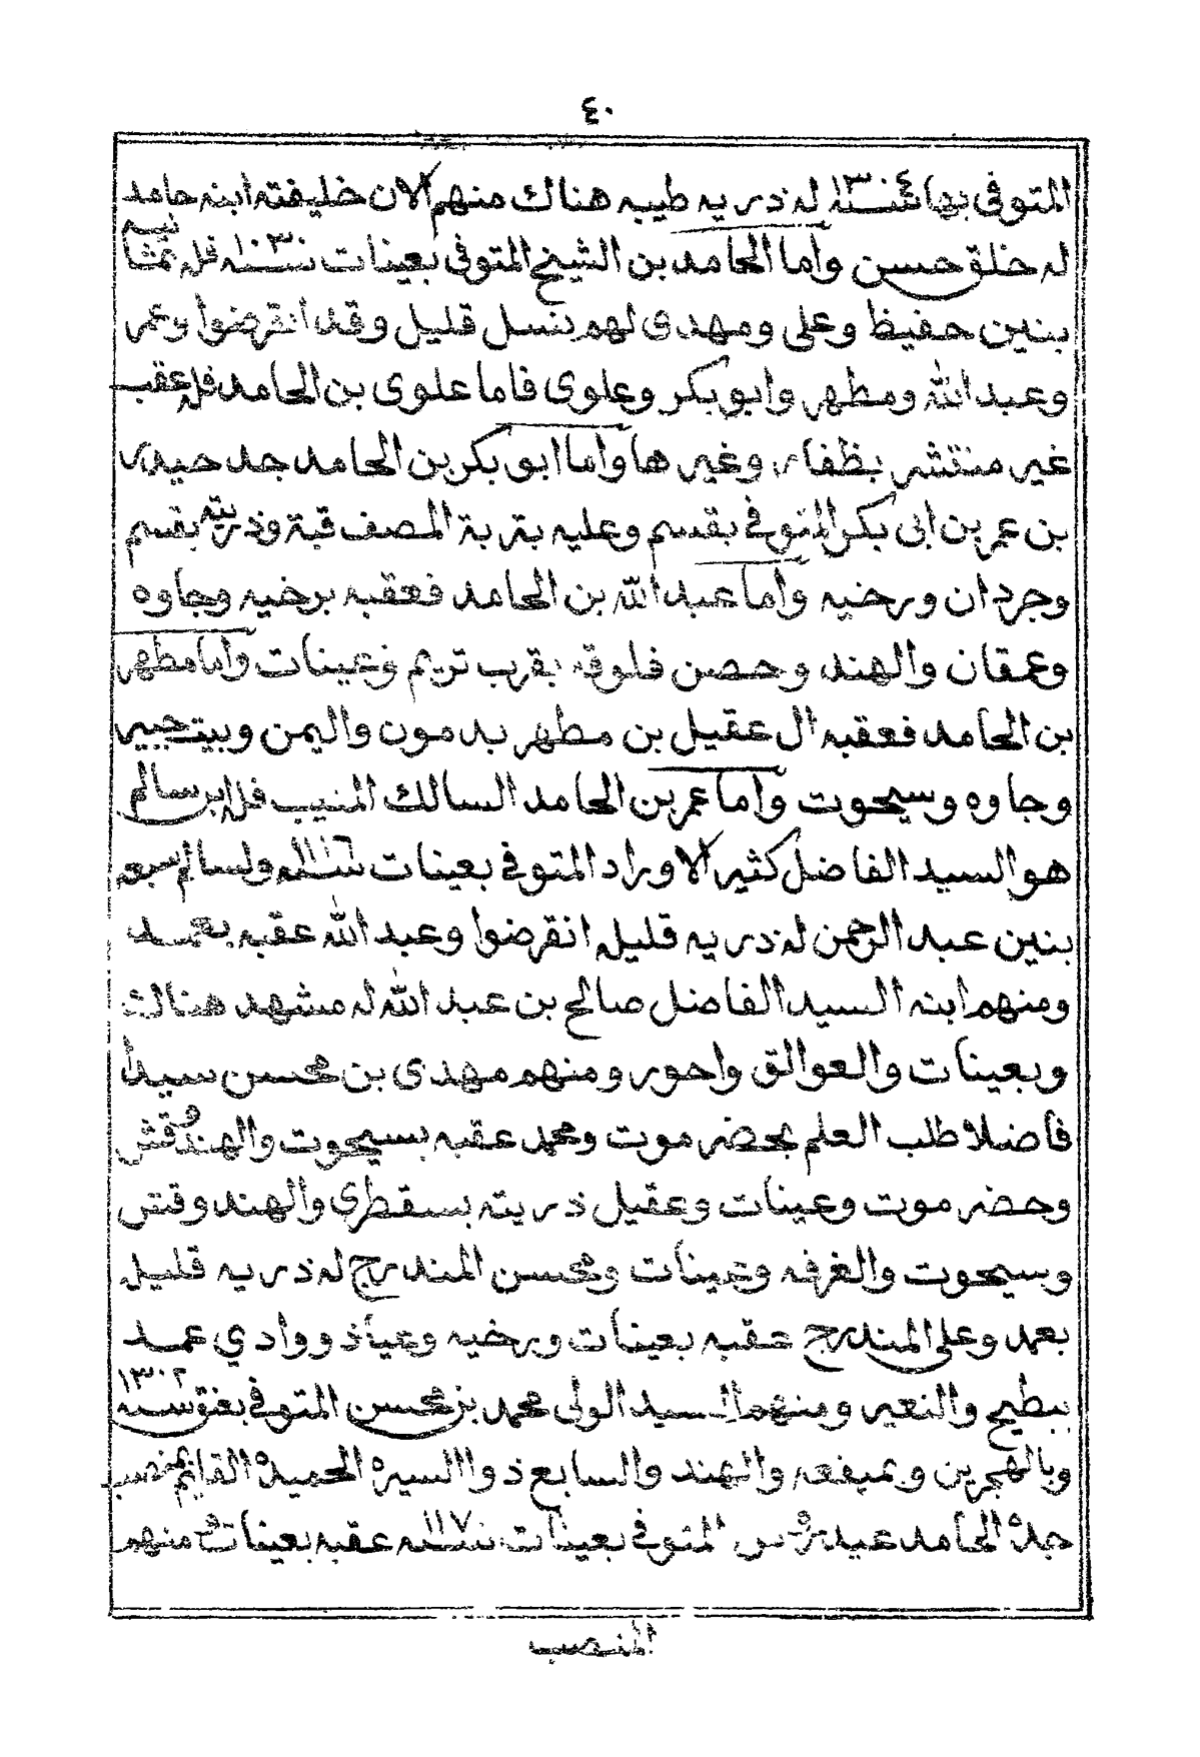 ٤٠
المتوفى بها سنة ١٣٠٤ له ذريه طيبه هناك منهم الان خليفته ابنه حامد
له خلق حسن واما الحامد بن الشيخ المتوفى بعينات سنة ١٠٣٠ فله ثمانية
بنين حفيظ وعلى ومهدى لهم نسل قليل وقد انقرضوا وعمر
وعبد الله ومطهر وابو بكر وعلوى فاما علوى بن الحامد فله عقب
غير منتشر بظفار وغيرها واما ابو بكر بن الحامد جد حيدر
بن عمر بن ابى بكر المتوفى بقسم وعليه بتربة المصف قبة وذريته بقسم
وجردان ورخيه واما عبد الله بن الحامد فعقبه برخيه وجاوه
وعمقان والهند وحصن فلوقه بقرب تريم وعينات واما مطهر
بن الحامد فعقبه ال عقيل بن مطهر بدمون واليمن وبيت جبير
وجاوه وسيحوت واما عمر بن الحامد السالك المنيب فله ابن سالم
هو السيد الفاضل كثير الاوراد المتوفى بعينات سنة ولسالم سبعه
بنين عبد الرحمن له ذريه قليل انقرضوا وعبد الله عقبه بعمد
ومنهم ابنه السيد الفاضل صالح بن عبد الله له مشهد هناك
وبعينات والعوالق واحور ومنهم مهدى بن محسن سيدا
فاضلا طلب العلم بحضرموت ومحمد عقبه بسيحوت والهند وقشن
وحضرموت وعينات وعقيل ذريته بسقطرى والهند وقشن
وسيحوت والغرفه وعينات ومحسن المندرج له ذريه قليل
بعمد وعلى المندرج عقبه بعينات ورخيه وعياذ ووادي عمد
ببطيح والنعير ومنهم السيد الولى محمد بن محسن المتوفى بغنق سنه ١٣٠٢
وبالهجرين وبميفعه والهند والسابع ذو السيرة الحميدة القائم بمنصب
جده الحامد عيدروس المتوفى بعينات سنة ١١٧٠ عقبه بعينات منهم
المنصب